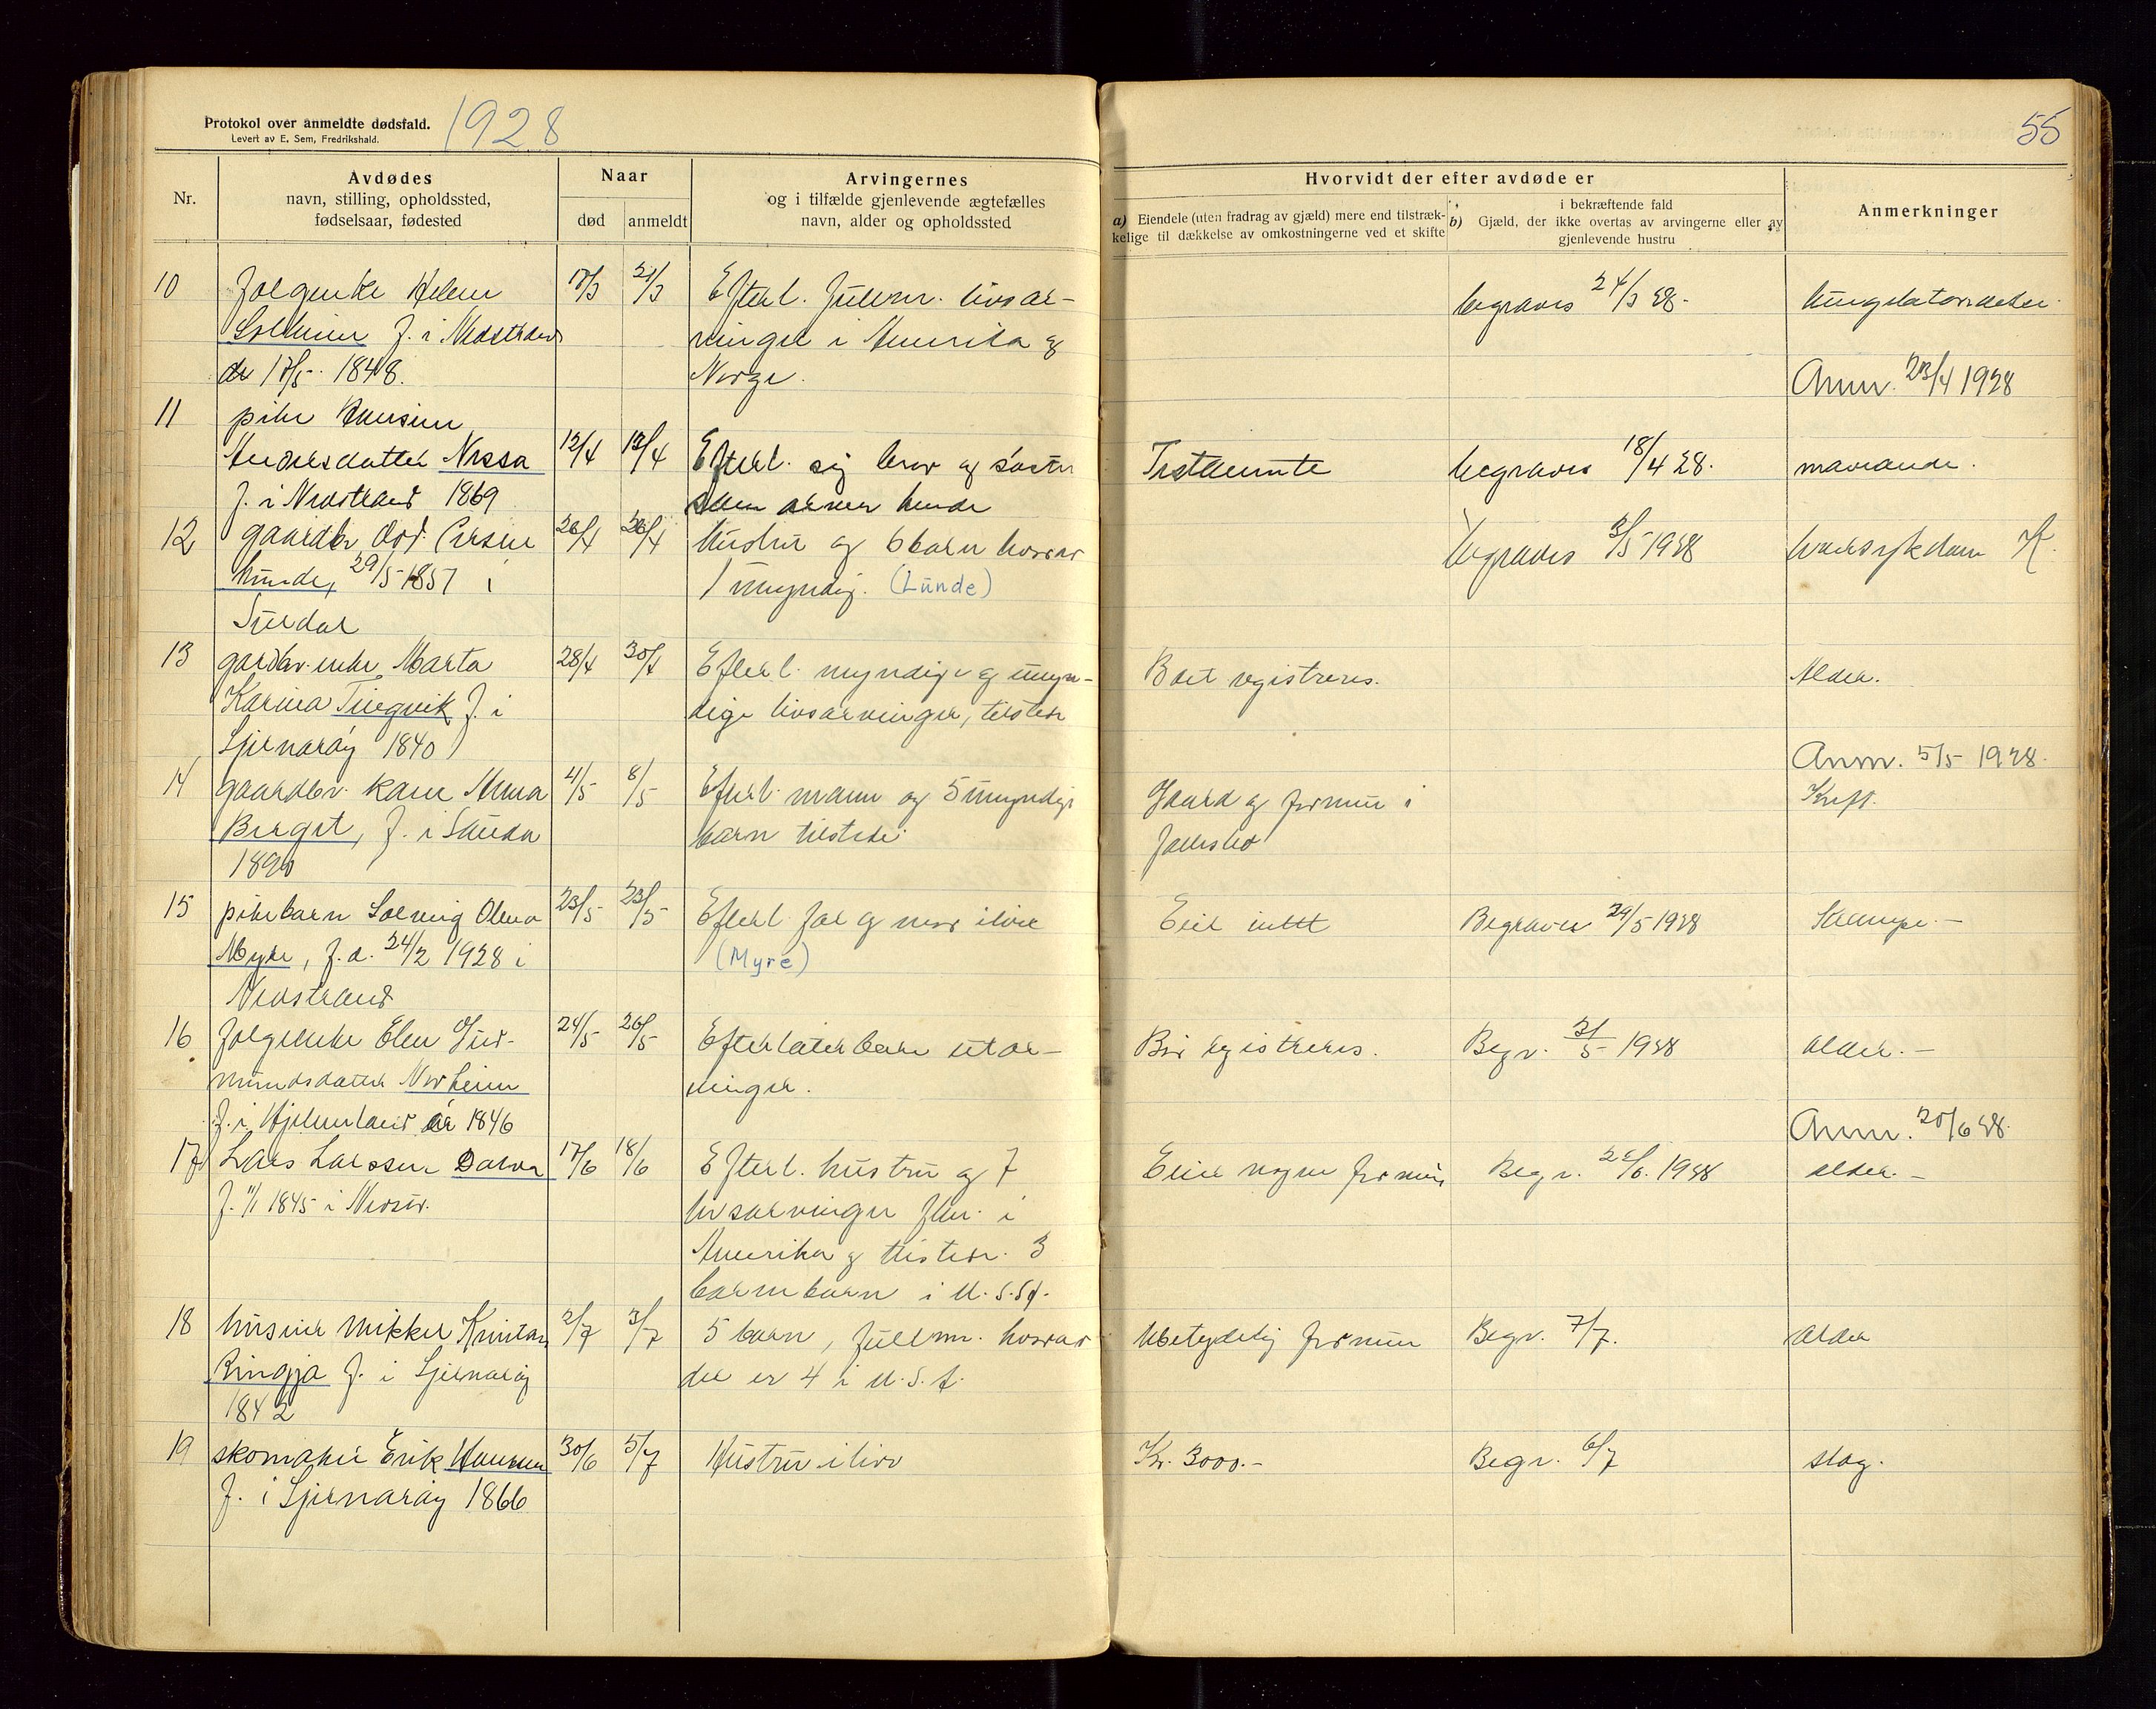 Protokol over anmeldte dødsfald.
Levert av E. Sem, Fredrikshald.
1928
55
Nr.
Avdødes
navn, stilling, opholdssted,
fødselsaar, fødested
Naar
død
anmeldt
Arvingernes
og i tilfælde gjenlevende ægtefælles
navn, alder og opholdssted
Hvorvidt der efter avdøde er
a) Eiendele (uten fradrag av gjæld) mere end tilstræk-
kelige til dækkelse av omkostningerne ved et skifte
i bekræftende fald
b) Gjæld, der ikke overtas av arvingerne eller av
gjenlevende hustru
Anmerkninger
10
folgenke Helene
Solheim f. i Nedstrand
17/5 1848.
17/3
21/3
Efterl. fullm. livsar-
vinger i Amerika og
Norge.
begraves 24/3 28.
Anm. 23/4 1928
11
pike
Andersdatter Nessa
f. i Nedstrand 1869
12/4
12/4
Efterl. sig bror og søster
som arver hende
Testamente
begraves 18/4 28.
marande.
12
gaardbr
Lunde, 29/5 1857 i
Suldal
26/4
26/4
Hustru og 6 barn hvorav
1 umyndig. (Lunde)
begraves 3/5 1928
13
gardbr. enke Marta
Karina Tingvik f. i
Sjernarøy 1840
28/4
30/4
Efterl. myndige og umyn-
dige livsarvinger, tilstede
Boet registreres.
Alder.
Anm. 5/5 1928.
14
gaardbr. kone Anna
Berget, f. i Sauda
1890
4/5
8/5
Efterl. mann og 5 umyndige
barn tilstede
Gaard og formue i
fællesbo
Kreft.
15
pikebarn Solveig Olena
Myre, f. d. 24/2 1928 i
Nedstrand
23/5
23/5
Efterl. far og mor i live
(Myre)
Eier intet
Begraves 29/5 1928
Krampe. -
16
folgeenke Elen Gud-
mundsdatter Norheim
f. i Hjelmeland år 1846
24/5
26/5
Efterlater bare utar-
vinger.
Bo registreres.
Begr. 31/5 1928
alder. -
Anm. 20/6 28.
17
Lars Larssen Dalva
f. 11/1 1845 i Nedstr.
17/6
18/6
Efterl. hustru og 7
livsarvinger flere i
Amerika og tilstede. 3
barnebarn i U.S.A.
Eier nogen formue
Begr. 22/6. 1928
alder. -
18
husmann Mikkel Knutsen
Ringja f. i Sjernarøy
1842
2/7
3/7
5 barn, fullm. hvorav
der er 4 i U.S.A.
Ubetydelig formue
Begr. 7/7.
alder
19
skomaker Erik Hansen
f. i Sjernarøy 1866
30/6
5/7
Hustru i live
Kr. 3000.-
Begr. 6/7
slag.